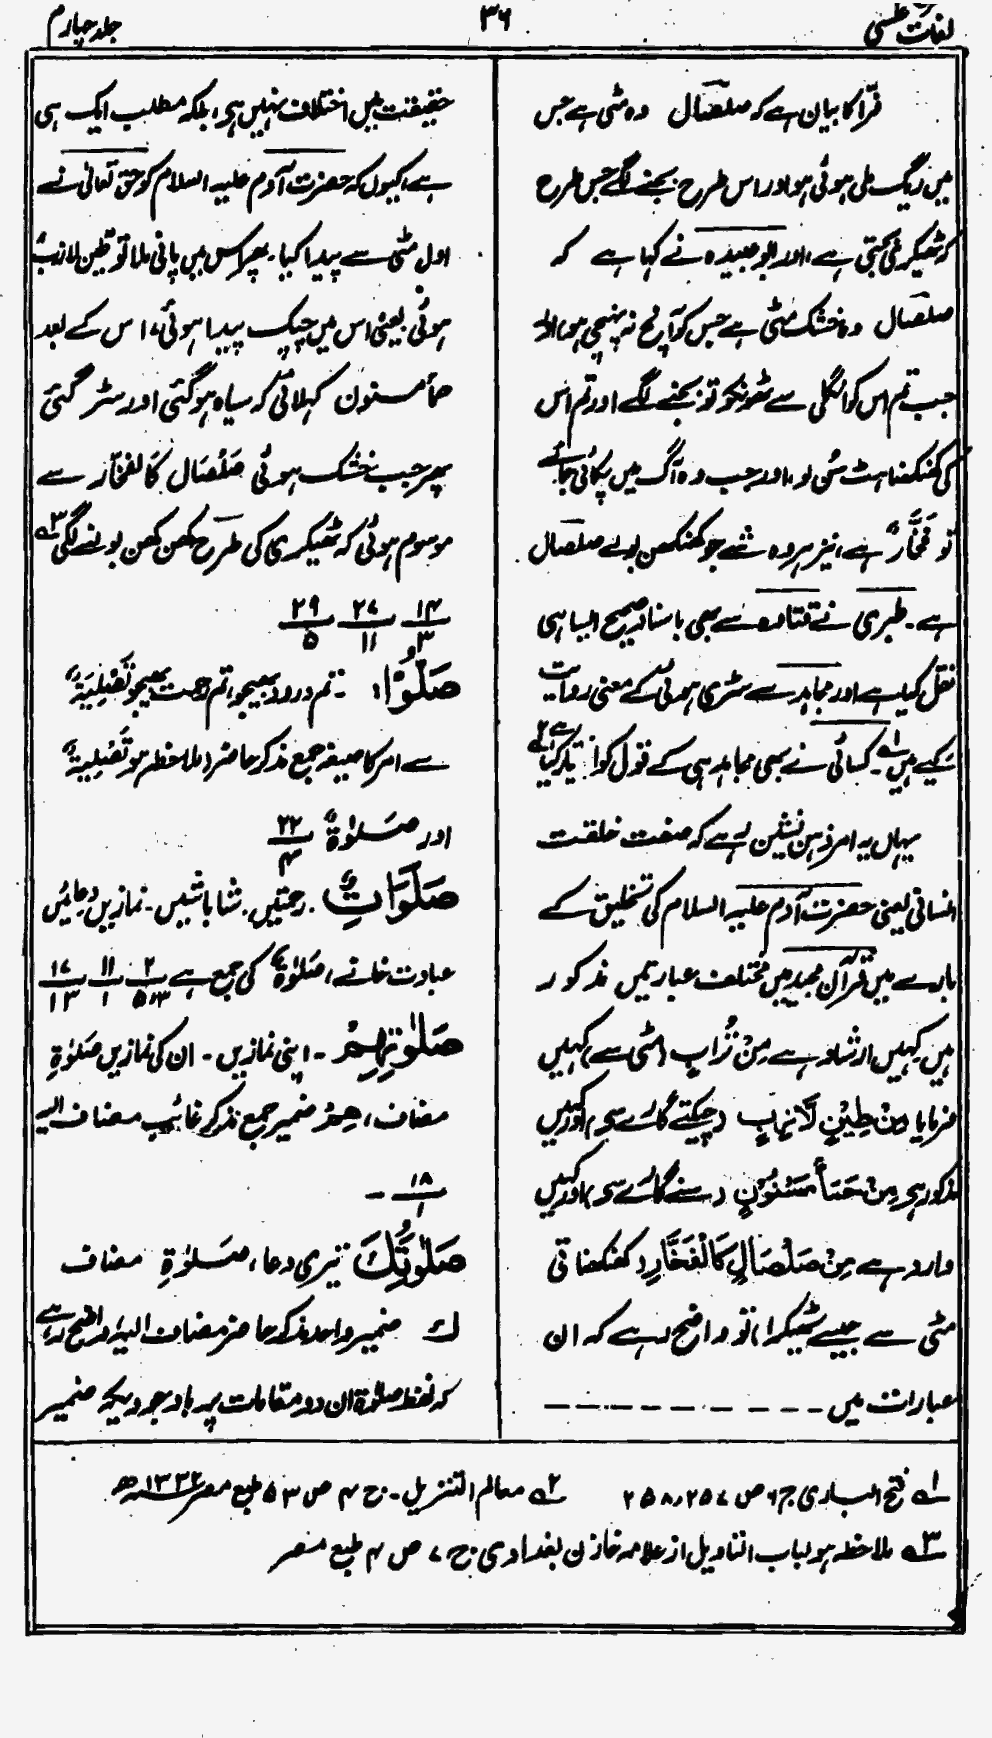 جلد چہارم
۳۶
لغات
فرّا کا بیان ہے کہ صلصال وہ مٹی ہے جس
میں ریگ ملی ہوئی ہو اور اس طرح بجنے لگے جس طرح
کہ ٹھیکری بجتی ہے، اور ابو عبیدہ نے کہا ہے کہ
صلصال وہ خشک مٹی ہے جس کو آنچ نہ پہنچی ہو، اور
جب تم اس کو انگلی سے ٹھونکو تو بجنے لگے اور تم اس
کی کھنکھناہٹ سُن لو، اور جب وہ آگ میں پکائی جائے
تو فَخَّارٌ ہے، نیز ہر وہ شے جو کھنکھن بولے صلصال
ہے۔ طبری نے قتادہ سے بھی باسناد صحیح ایسا ہی
نقل کیا ہے اور مجاہد سے سڑی ہوئی کے معنی روایت
کیے ہیں ؎۱۔ کسائی نے بھی مجاہد ہی کے قول کو اختیار کیا ہے ؎۲
یہاں یہ امر ذہن نشین رہے کہ صفت خلقت
انسانی یعنی حضرت آدم علیہ السلام کی تخلیق کے
بارے میں قرآن مجید میں مختلف عبارتیں مذکور
ہیں کہیں ارشاد ہے مِنْ تُرَابٍ (مٹی سے) کہیں
فرمایا مِنْ طِیْنٍ لَّازِبٍ (چپکتے گارے سے) اور کہیں
مذکور ہے مِنْ حَمَأٍ مَّسْنُوْنٍ (سنے گارے سے) اور کہیں
وارد ہے مِنْ صَلْصَالٍ کَالْفَخَّارِ (کھنکھناتی
مٹی سے جیسے ٹھیکرا) تو واضح رہے کہ ان
عبارات میں ــ ــ ــ ــ ــ ــ ــ ــ ــ
حقیقت میں اختلاف نہیں ہے، بلکہ مطلب ایک ہی
ہے، کیوں کہ حضرت آدم علیہ السلام کو حق تعالیٰ نے
اول مٹی سے پیدا کیا۔ پھر اس میں پانی ملا تو طین لازب
ہوئی یعنی اس میں چپک پیدا ہوئی، اس کے بعد
حمأ مسنون کہلائی کہ سیاہ ہوگئی اور سڑ گئی
پھر جب خشک ہوئی صَلْصَال کَالفَخّار سے
موسوم ہوئی کہ ٹھیکری کی طرح کھن کھن بولنے لگی ؎۳
۱۴/۳ ۲۷/۱۱ ۲۹/۵
صَلُّوْا: ۔ تم درود بھیجو، تم رحمت بھیجو تَصْلِیَةٌ
سے امر کا صیغہ جمع مذکر حاضر (ملاحظہ ہو تَصْلِیَةٌ
اور صَلٰوةٌ ۲۲/۴
صَلَوَاتٌ ۔ رحمتیں۔ شاباشیں۔ نمازیں دعائیں
عبادت خانے، صَلٰوةٌ کی جمع ہے ۲/۳،۵ ۱۱/۱ ۱۷/۱۳
صَلٰوتِهِمْ ۔ اپنی نمازیں۔ ان کی نمازیں صَلٰوةِ
مضاف، هِمْ ضمیر جمع مذکر غائب مضاف الیہ
۱۸/۱ ۔
صَلٰوتُكَ تیری دعا، صَلٰوةِ مضاف
كَ ضمیر واحد مذکر حاضر مضاف الیہ، واضح رہے
کہ لفظ صلٰوۃ ان دو مقامات پر باوجودیکہ ضمیر
؎۱ فتح الباری ج ۶ ص ۲۵۷، ۲۵۸ ؎۲ معالم التنزیل۔ ج ۴ ص ۵۳ طبع مصر ۱۳۳۲ھ
؎۳ ملاحظہ ہو لباب التاویل از علامہ خازن بغدادی ج، ۷ ص ۴ طبع مصر